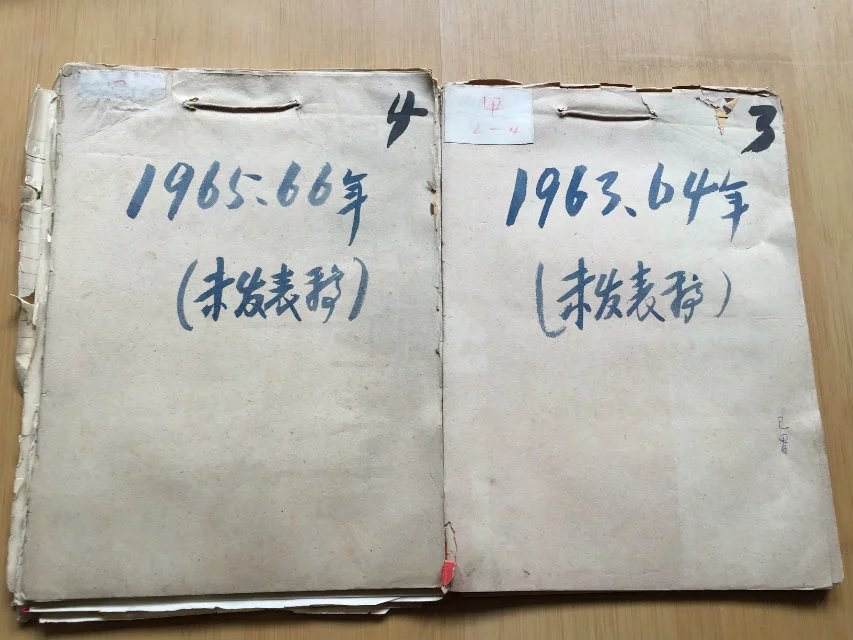 4
1965.66年
(未发表稿)
甲
2-4
3
1963、64年
(未发表稿)